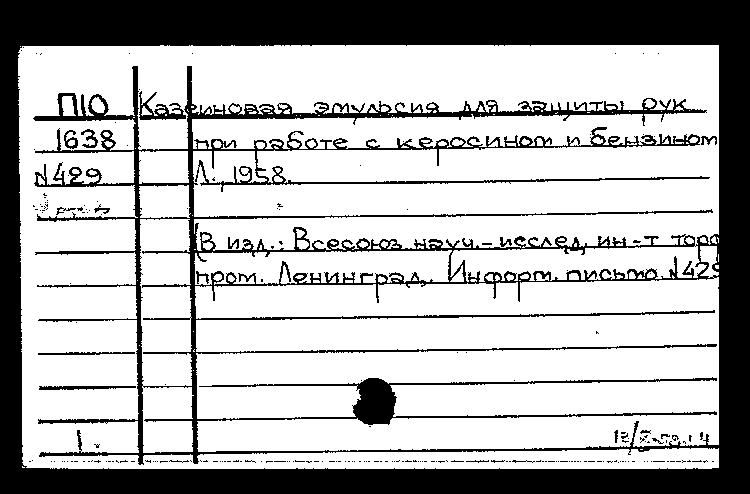 П10 Казеиновая эмульсия для защиты рук
1638 при работе с керосином и бензином
№429 Л., 1958.
(В изд.: Всесоюз. науч.-исслед. ин-т торф
пром. Ленинград. Информ. письмо №429
1.